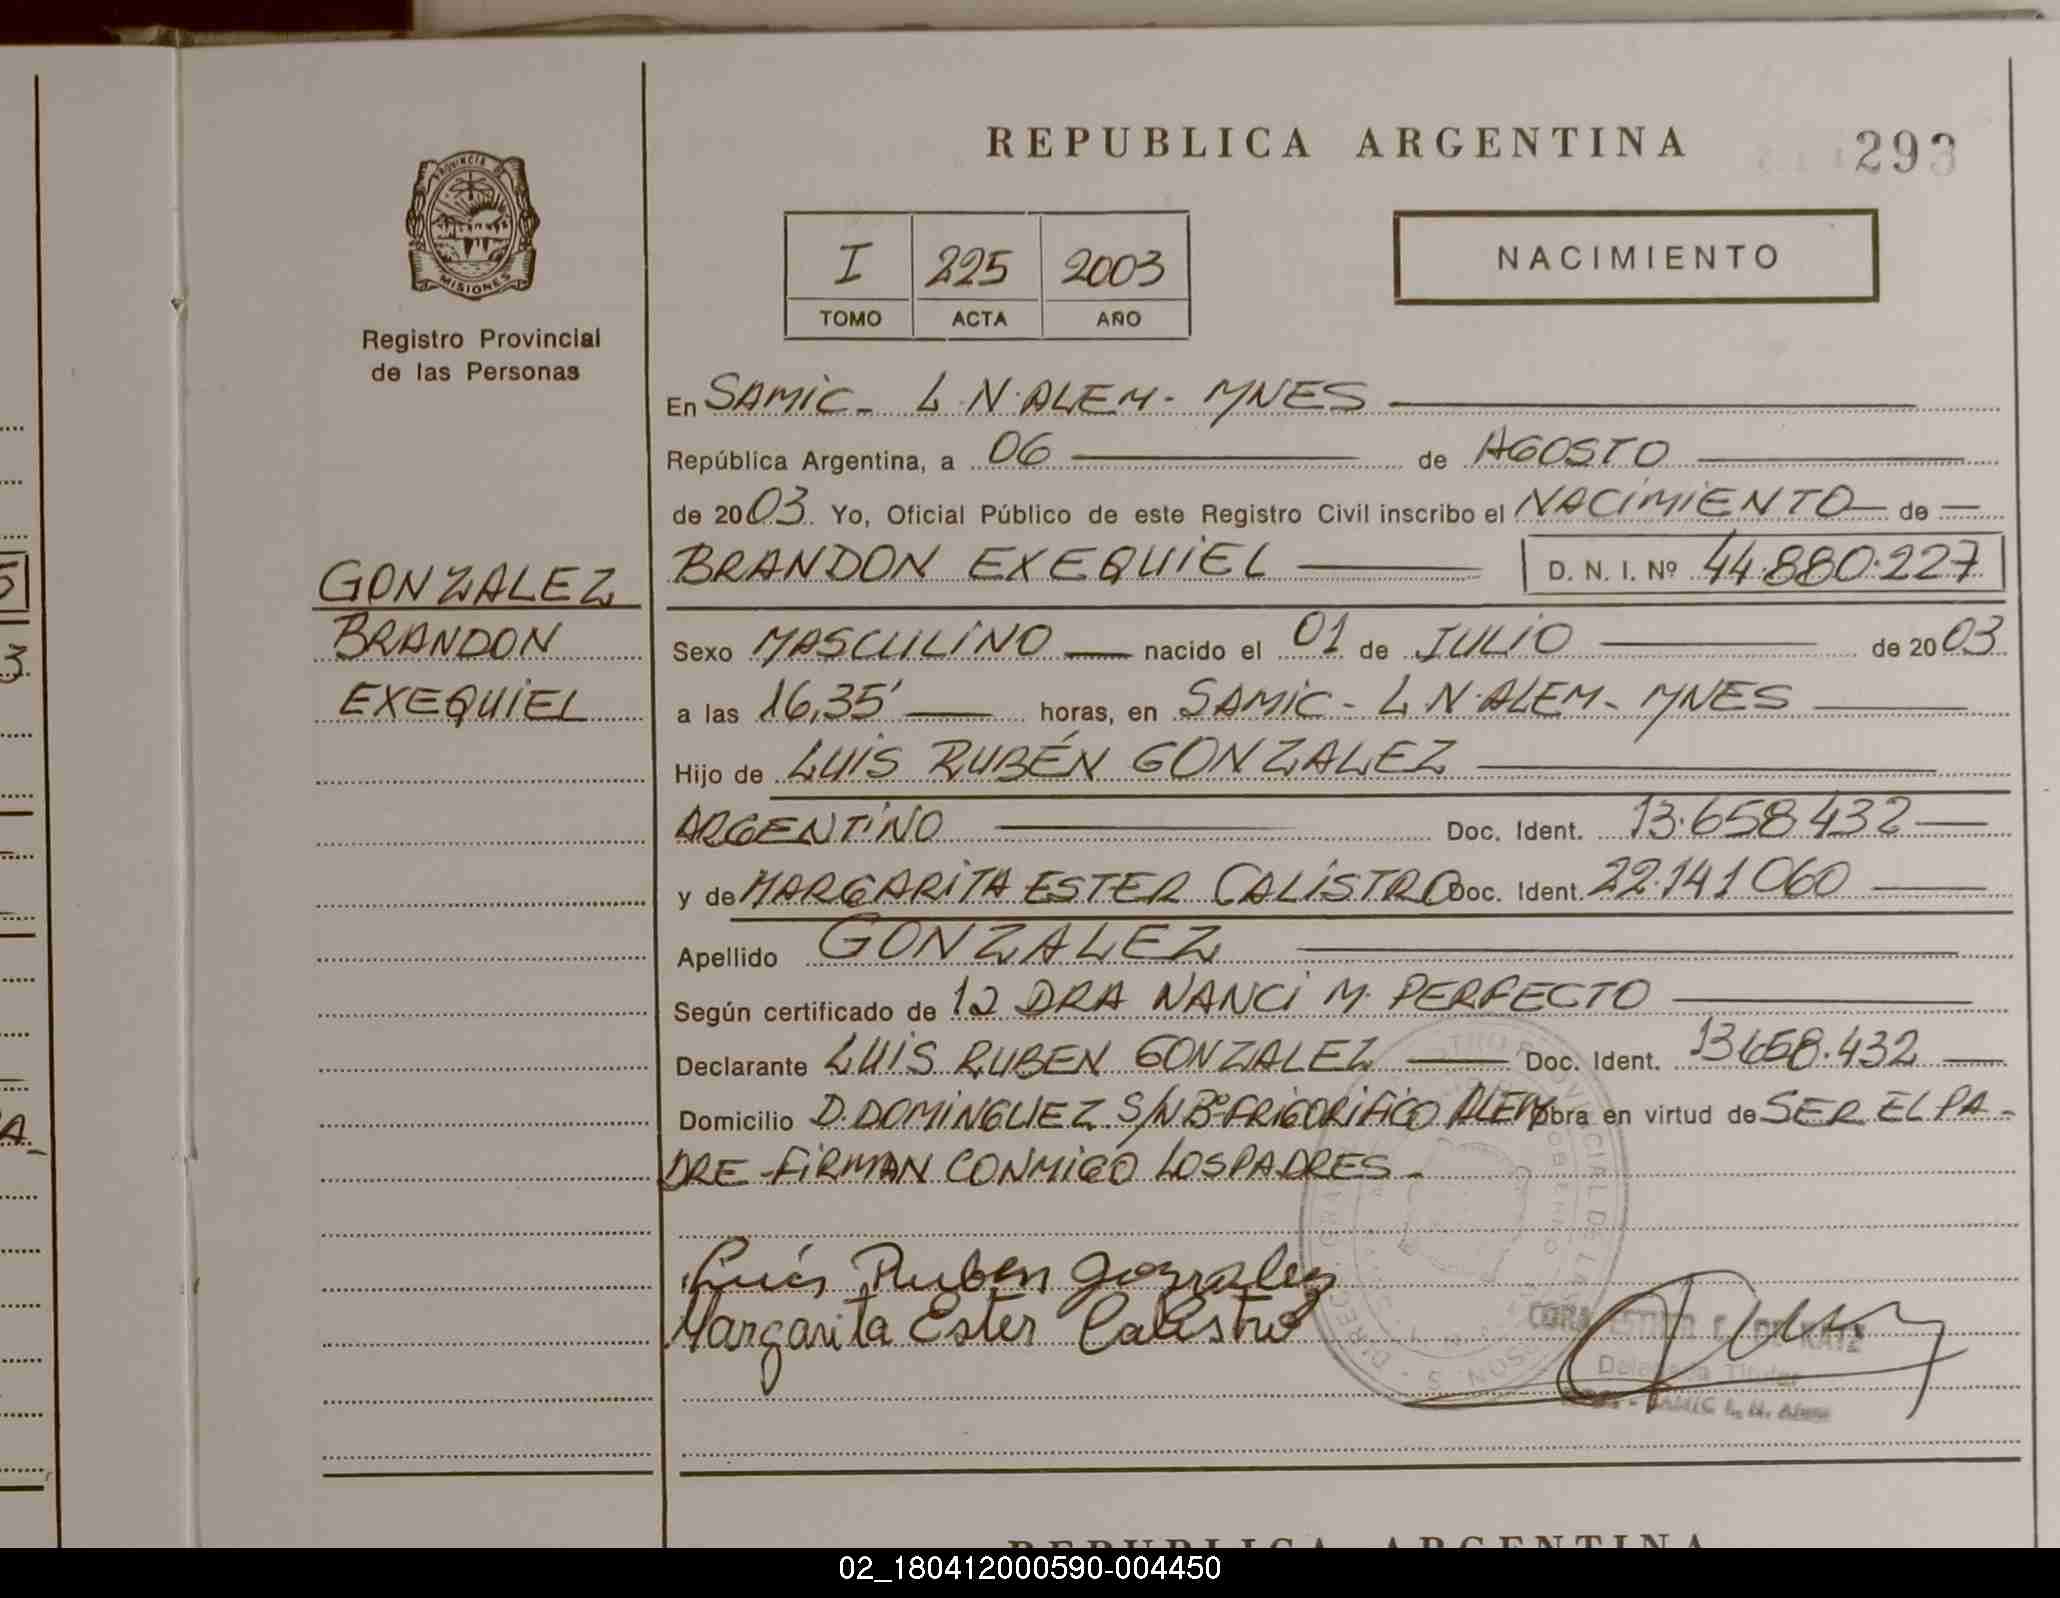 REPUBLICA ARGENTINA
293
PROVINCIA DE
MISIONES
Registro Provincial
de las Personas
I 225 2003
TOMO ACTA AÑO
NACIMIENTO
En SAMIC - L.N.ALEM - MNES
República Argentina, a 06 de AGOSTO
de 2003. Yo, Oficial Público de este Registro Civil inscribo el NACIMIENTO de
GONZALEZ
BRANDON
EXEQUIEL
BRANDON EXEQUIEL D. N. I. Nº 44.880.227
Sexo MASCULINO nacido el 01 de JULIO de 2003
a las 16,35' horas, en SAMIC - L.N.ALEM - MNES
Hijo de LUIS RUBÉN GONZALEZ
ARGENTINO Doc. Ident. 13.658.432
y de MARGARITA ESTER CALISTRO Doc. Ident. 22.141.060
Apellido GONZALEZ
Según certificado de 12 DRA NANCI M. PERFECTO
Declarante LUIS RUBEN GONZALEZ Doc. Ident. 13.658.432
Domicilio D.DOMINGUEZ S/N Bº FRIGORIFICO ALEM Obra en virtud de SER EL PA-
DRE - FIRMAN CONMIGO LOS PADRES -
Luis Ruben Gonzalez
Margarita Ester Calistro
DE KATZ
Delegada Titular
SAMIC L. N. Alem
REPUBLICA ARGENTINA
02_180412000590-004450